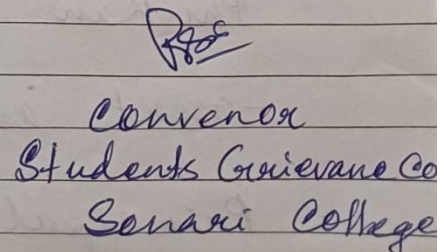 Convenor
Students Grievane Co
Sonari College